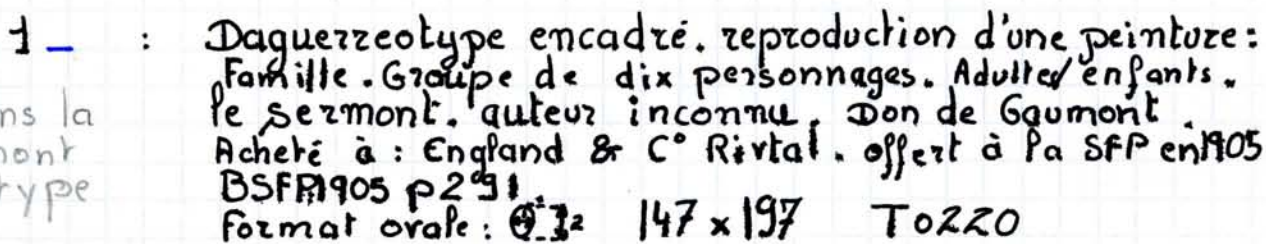 1 - : Daguerreotype encadré. reproduction d'une peinture:
Famille. Groupe de dix personnages. Adultes/enfants.
ns la le sermont. auteur inconnu. Don de Gaumont.
mont Acheté à: England & C° . offert à la SFP en 1905
type BSFP 1905 p291
Format ovale: 147 x 197 TOZZO